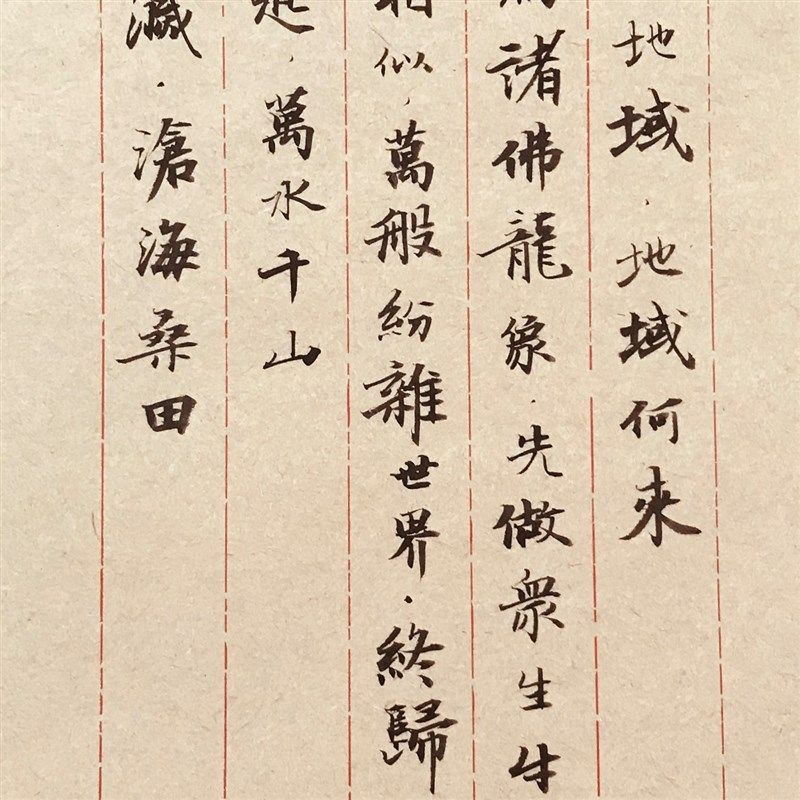 地域．地域何來
諸佛龍象．先做衆生牛
相似，萬般紛雜世界．終歸
，萬水千山
滅．滄海桑田